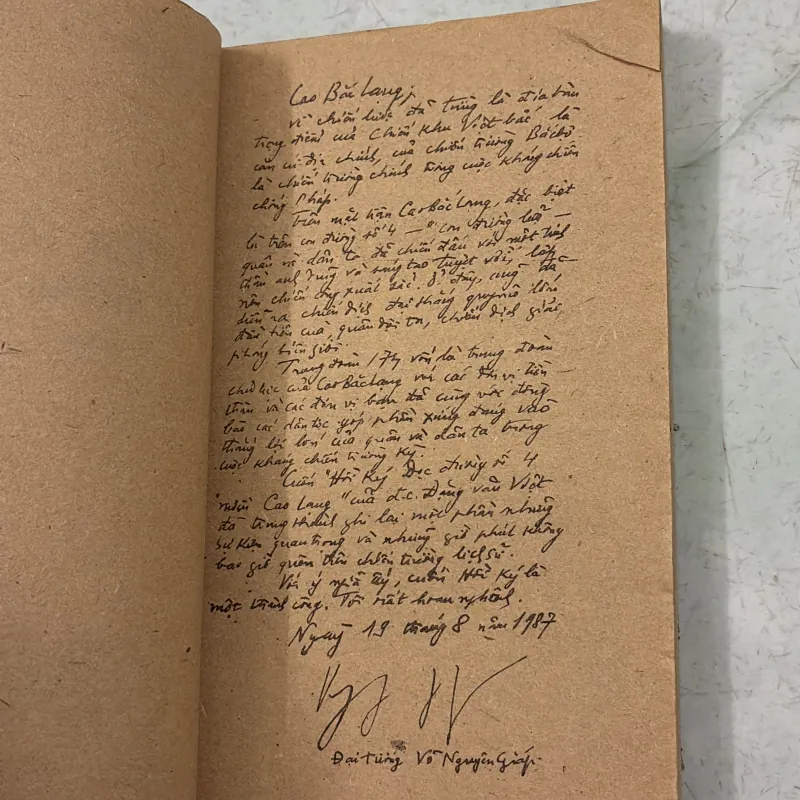 Cao Bắc Lạng,
về chiến lược đã từng là địa bàn
trọng điểm của Chiến khu Việt bắc, là
căn cứ địa chính, của chiến trường Bắc bộ
là chiến trường chính trong cuộc kháng chiến
chống Pháp.
Trên mặt trận Cao Bắc Lạng, đặc biệt
là trên con đường số 4 — "con đường lửa" —
quân và dân ta đã chiến đấu với một tinh
thần anh dũng và sáng tạo tuyệt vời, lập
nên chiến công xuất sắc. Ở đây, cũng đã
diễn ra chiến dịch đại thắng quy mô lớn
đầu tiên của quân đội ta, chiến dịch giải
phóng biên giới.
Trung đoàn 174 vốn là trung đoàn
chủ lực của Cao Bắc Lạng với các đơn vị tiền
thân và các đơn vị bạn đã cùng với đồng
bào các dân tộc góp phần xứng đáng vào
thắng lợi lớn của quân và dân ta trong
cuộc kháng chiến trường kỳ.
Cuốn "Hồi Ký Dọc đường số 4
miền Cao Lạng" của đ.c. Đặng văn Việt
đã trung thành ghi lại một phần những
sự kiện quan trọng và những giờ phút không
bao giờ quên trên chiến trường lịch sử.
Với ý nghĩa ấy, cuốn Hồi Ký là
một thành công. Tôi rất hoan nghênh.
Ngày 19 tháng 8 năm 1987
Đại tướng Võ Nguyên Giáp.